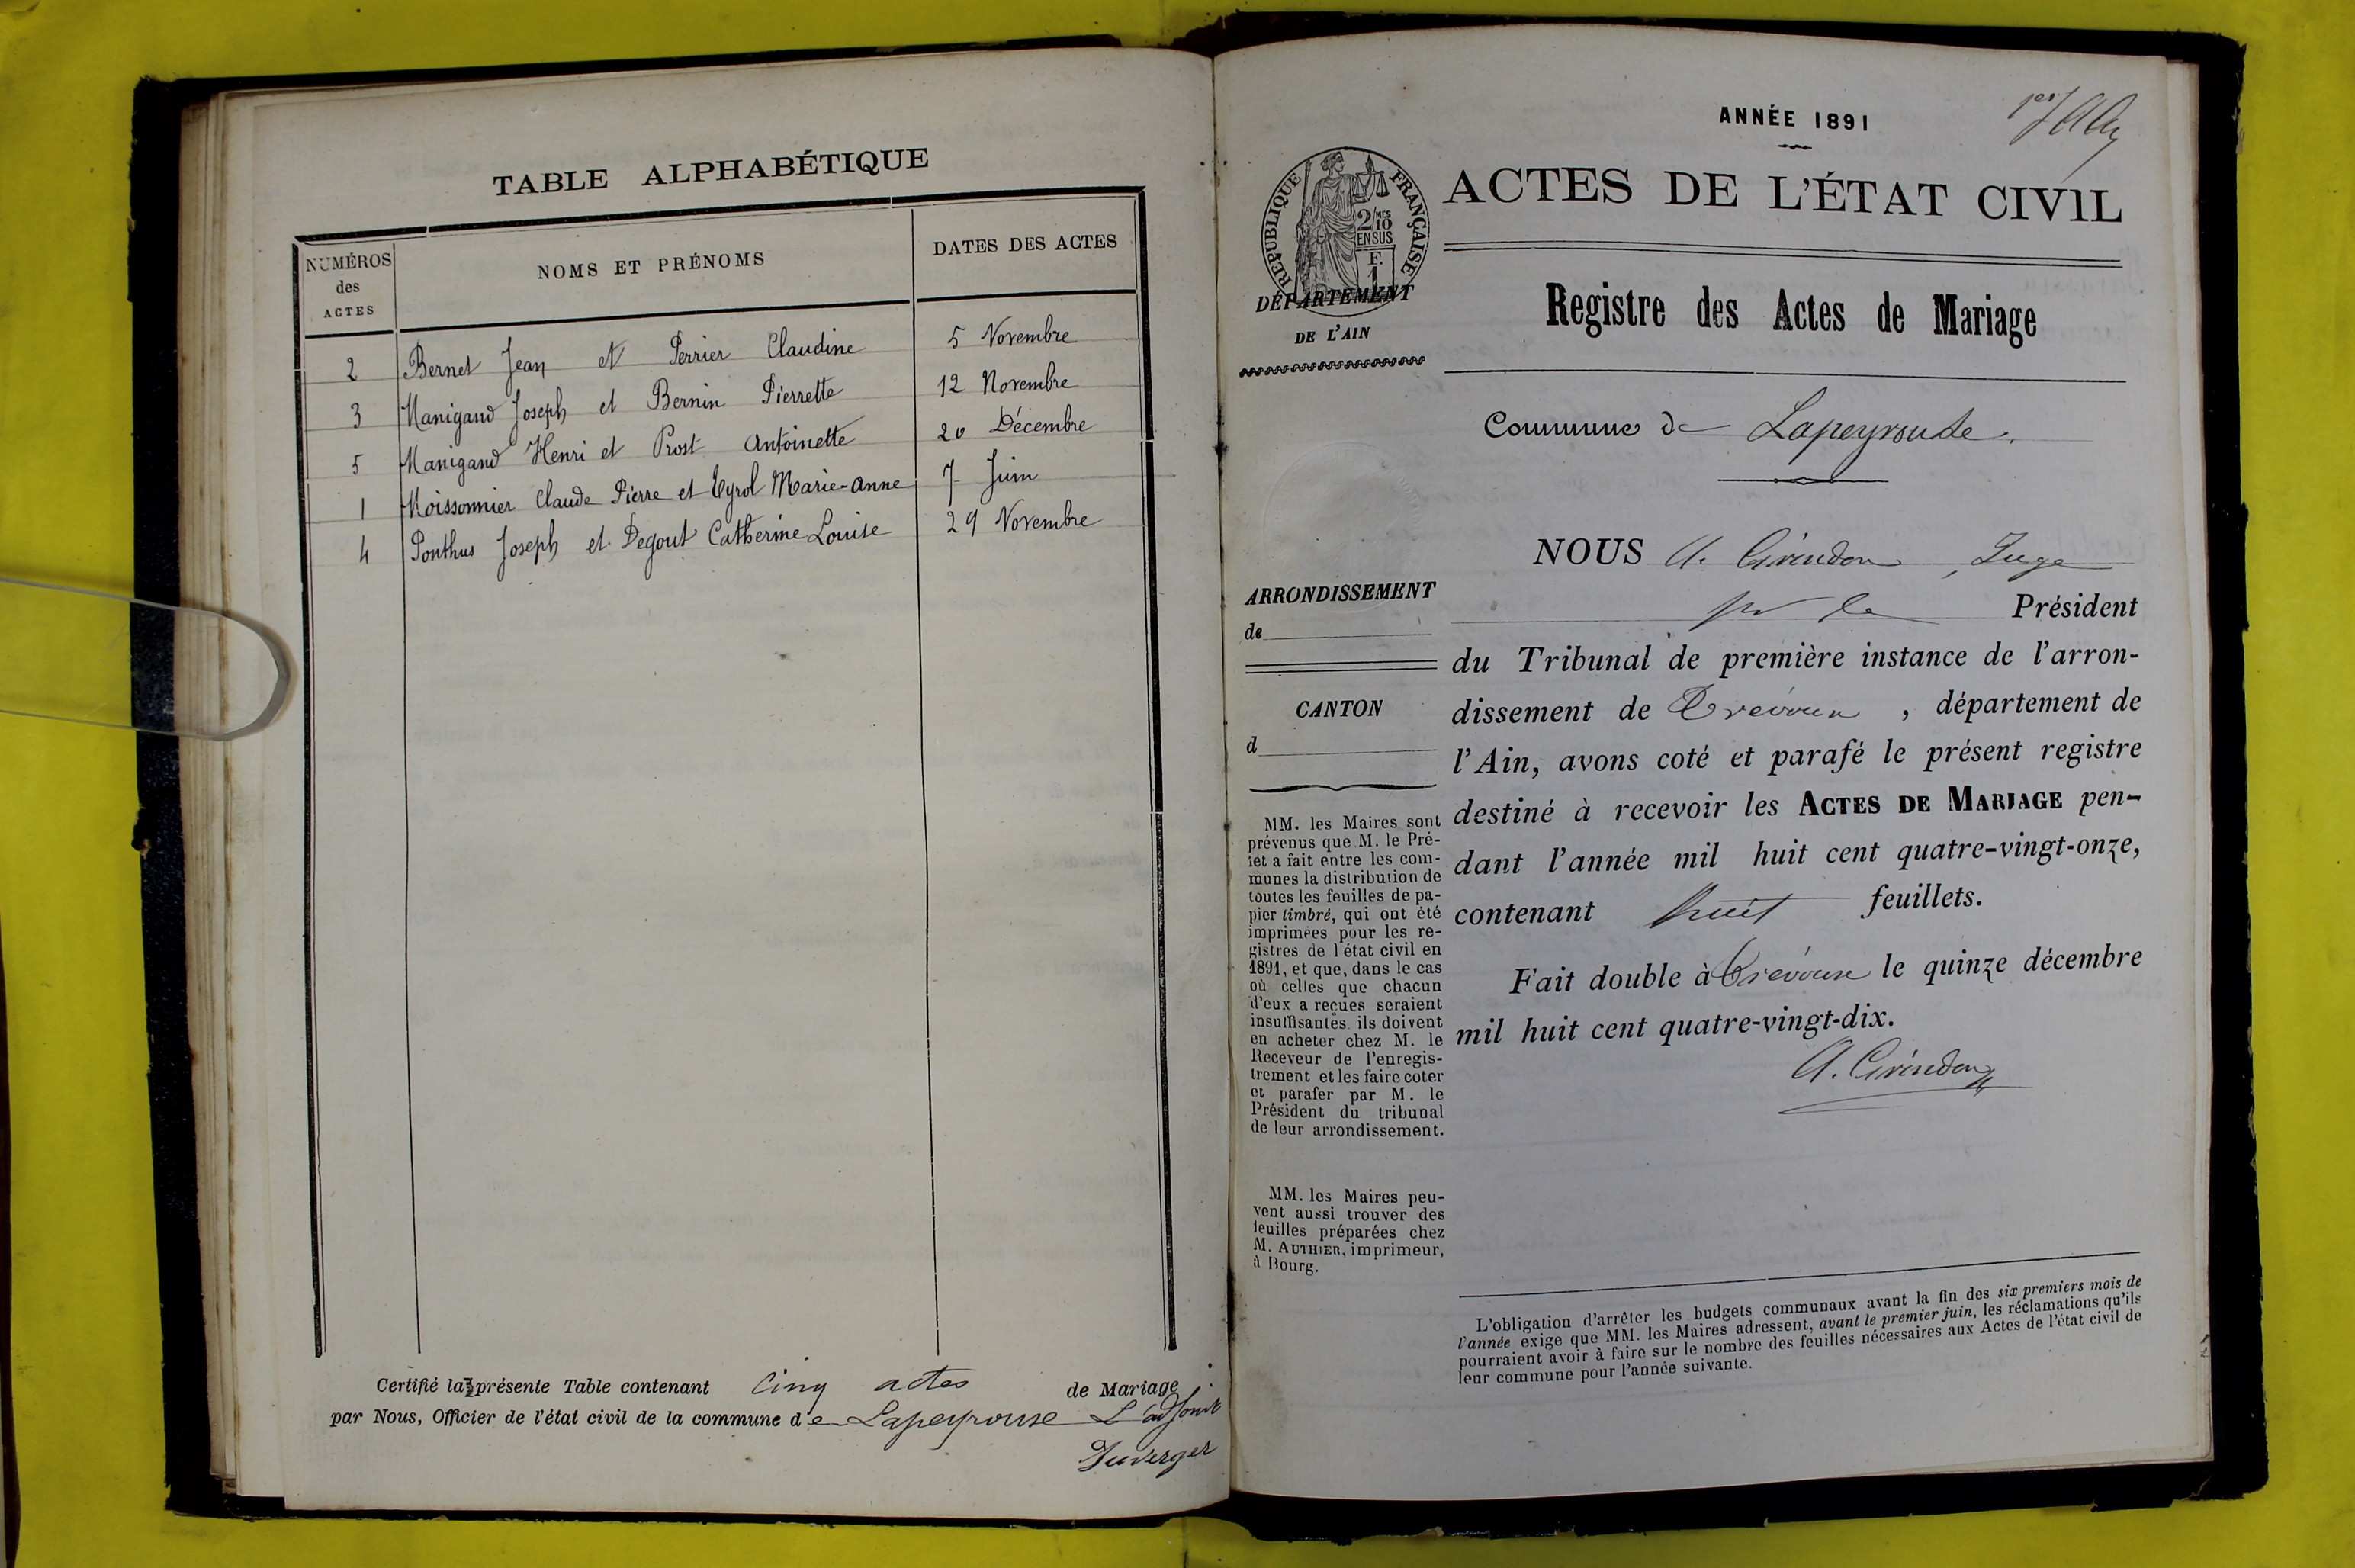 TABLE ALPHABÉTIQUE
NUMÉROS des ACTES NOMS ET PRÉNOMS DATES DES ACTES
2 Bernet Jean et Perrier Claudine 5 Novembre
3 Manigand Joseph et Bernin Pierrette 12 Novembre
5 Manigand Henri et Prost Antoinette 20 Décembre
1 Moissonnier Claude Pierre et Eyrol Marie-Anne 7 Juin
4 Ponthus Joseph et Degout Catherine Louise 29 Novembre
Certifié la présente Table contenant Cinq actes de Mariage
par Nous, Officier de l'état civil de la commune de Lapeyrouse L'adjoint
Duverger
ANNÉE 1891
ACTES DE L'ÉTAT CIVIL
RÉPUBLIQUE FRANÇAISE
2/10 MES
EN SUS
1 F.
DÉPARTEMENT
DE L'AIN
Registre des Actes de Mariage
Commune de Lapeyrouse.
ARRONDISSEMENT
de
CANTON
d
MM. les Maires sont
prévenus que M. le Pré-
fet a fait entre les com-
munes la distribution de
toutes les feuilles de pa-
pier timbré, qui ont été
imprimées pour les re-
gistres de l'état civil en
1891, et que, dans le cas
où celles que chacun
d'eux a reçues seraient
insuffisantes, ils doivent
en acheter chez M. le
Receveur de l'enregis-
trement et les faire coter
et parafer par M. le
Président du tribunal
de leur arrondissement.
MM. les Maires peu-
vent aussi trouver des
feuilles préparées chez
M. AUTHIER, imprimeur,
à Bourg.
NOUS A. Girendon, Juge
pr le Président
du Tribunal de première instance de l'arron-
dissement de Trévoux, département de
l'Ain, avons coté et parafé le présent registre
destiné à recevoir les ACTES DE MARIAGE pen-
dant l'année mil huit cent quatre-vingt-onze,
contenant huit feuillets.
Fait double à Trévoux le quinze décembre
mil huit cent quatre-vingt-dix.
A. Girendon
L'obligation d'arrêter les budgets communaux avant la fin des six premiers mois de
l'année exige que MM. les Maires adressent, avant le premier juin, les réclamations qu'ils
pourraient avoir à faire sur le nombre des feuilles nécessaires aux Actes de l'état civil de
leur commune pour l'année suivante.